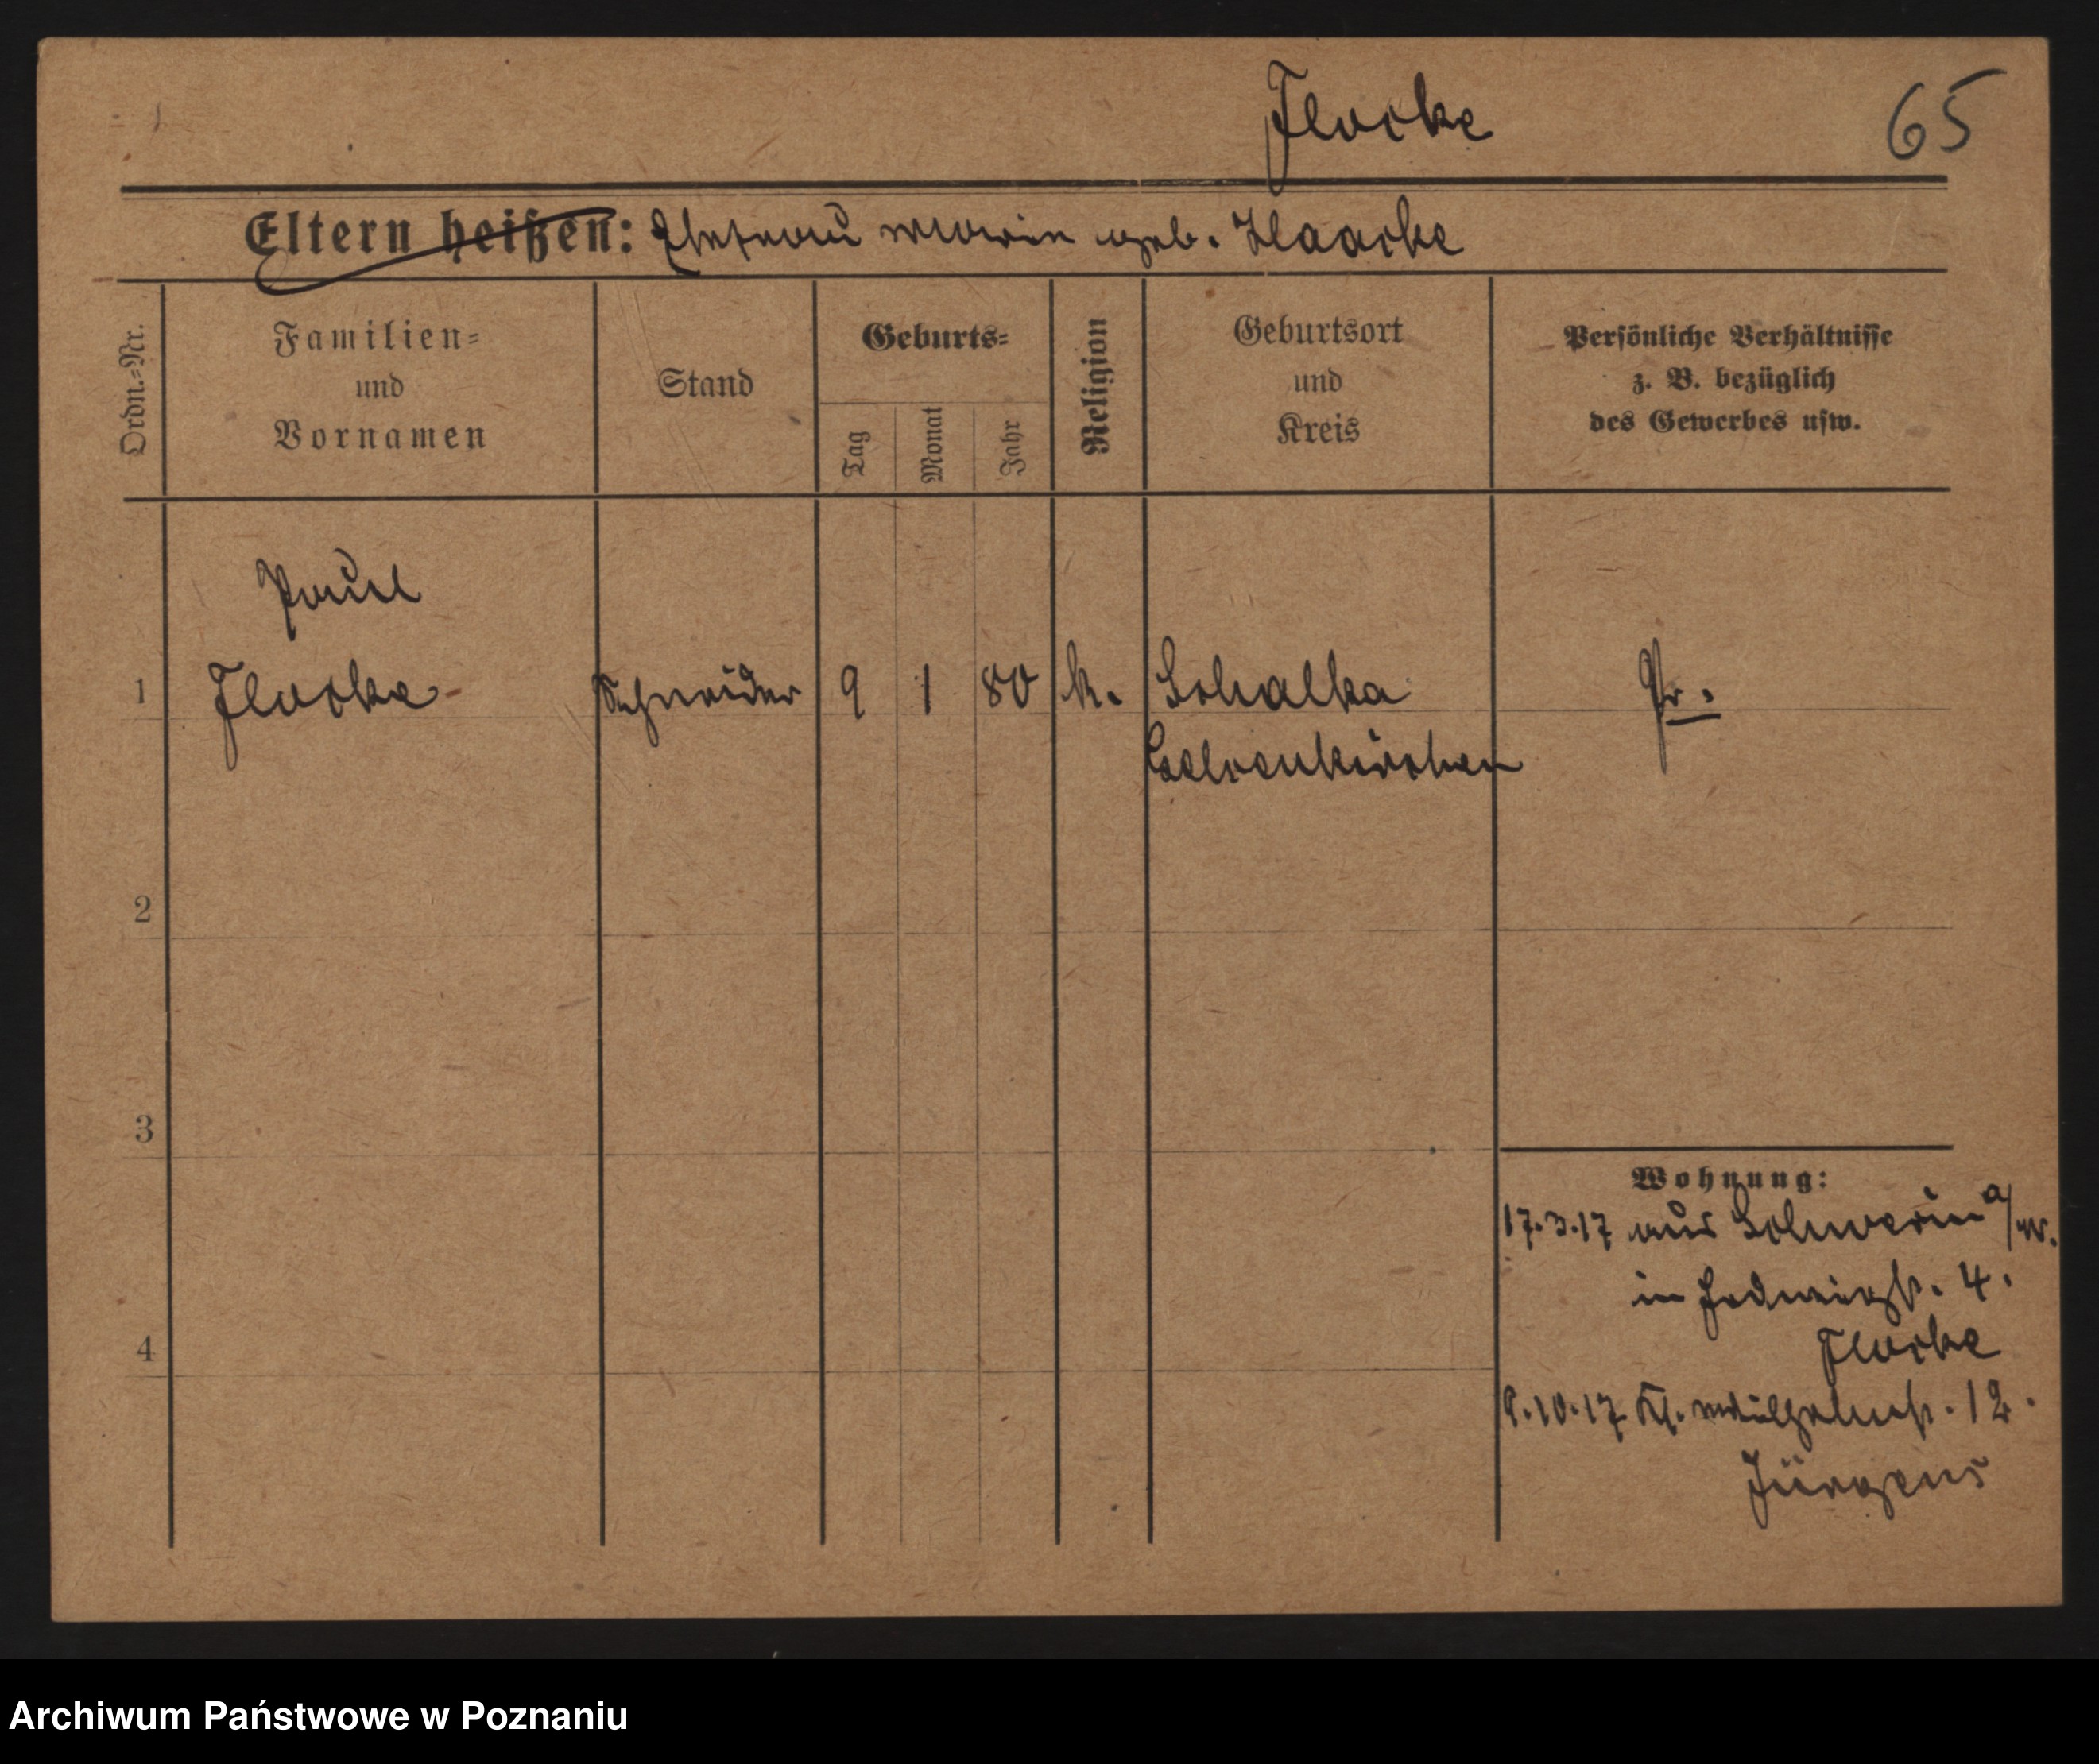 Flocke
65
Eltern heißen: Ehefrau Marie geb. Haacke
Ordn.-Nr.
Familien-
und
Vornamen
Stand
Geburts-
Tag
Monat
Jahr
Religion
Geburtsort
und
Kreis
Persönliche Verhältnisse
z. B. bezüglich
des Gewerbes usw.
Paul
1 Flocke Schneider 9 1 80 k. Schalke Pr.
Gelsenkirchen
2
3
4
Wohnung:
17.3.17 aus Schwerin a/W.
in Hedwigstr. 4.
Flocke
9.10.17 Kl. 12.
Jürgens
Archiwum Państwowe w Poznaniu